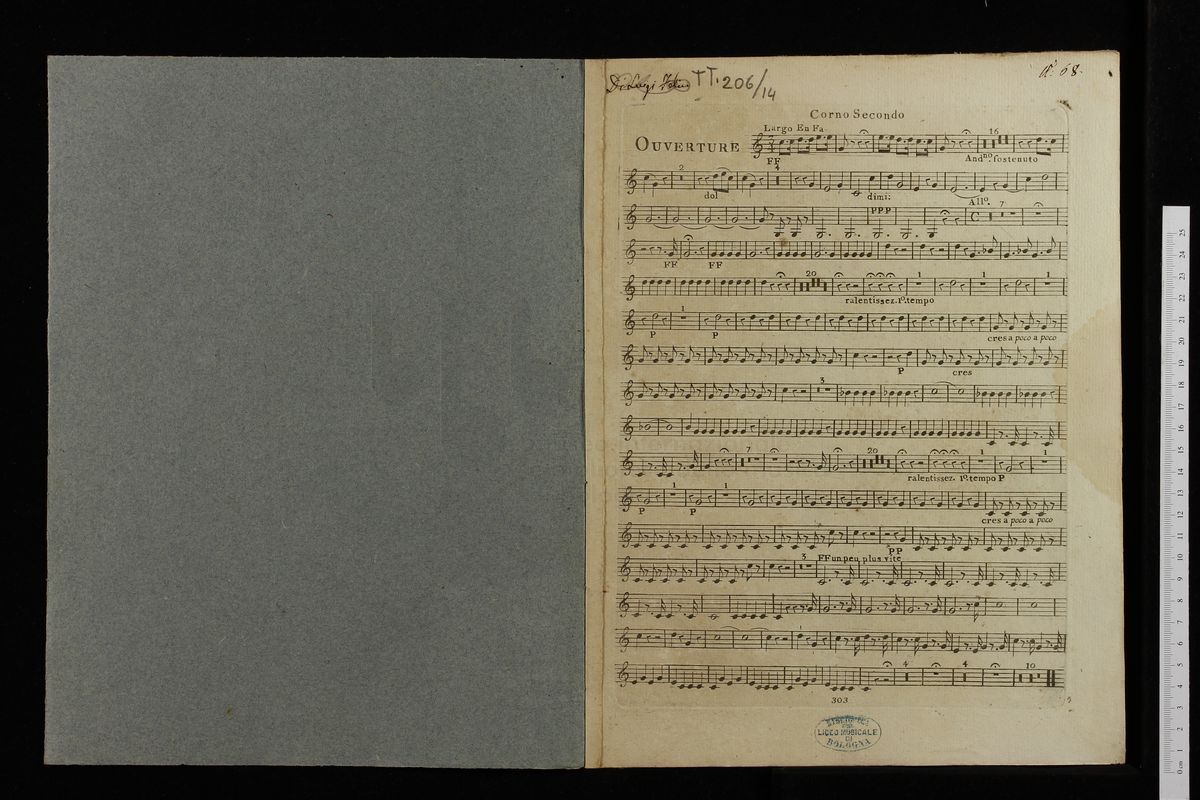 Di Luigi TT. 206/14
N. 68.
Corno Secondo
OUVERTURE Largo En Fa 16
FF And.no sostenuto
2 4
dol dimi:
PPP All.o C 7
FF FF
20 1 1 1
ralentissez. 1.o tempo
1
P P cres a poco a poco
P cres
3
7 20 1 1
ralentissez. 1.o tempo P
1 1
P P cres a poco a poco
PP
3 FF un peu plus vite
4 4 10
303
LICEO MUSICALE
DI
BOLOGNA
0 cm 1 2 3 4 5 6 7 8 9 10 11 12 13 14 15 16 17 18 19 20 21 22 23 24 25